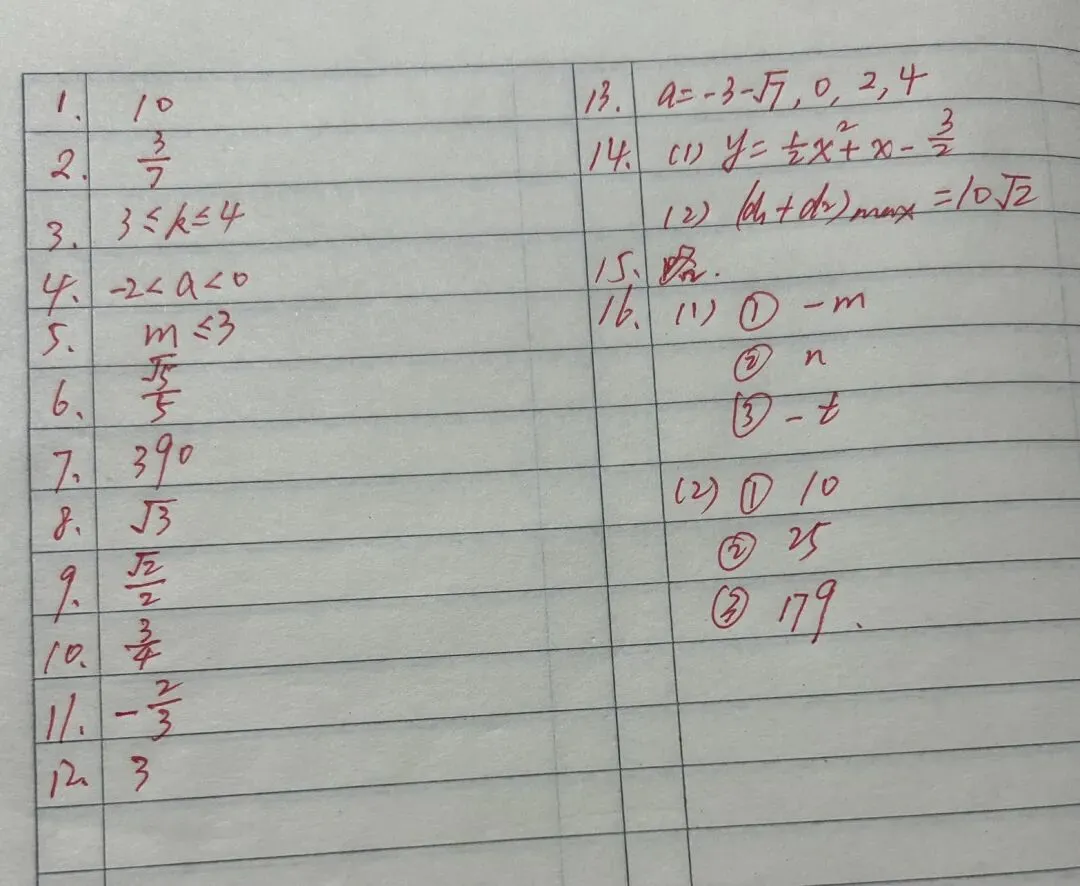 1. 10
2. 3/7
3. 3≤k≤4
4. -2<a<0
5. m≤3
6. √5/5
7. 390
8. √3
9. √2/2
10. 3/4
11. -2/3
12. 3
13. a=-3-√7, 0, 2, 4
14. (1) y=½x²+x-3/2
(2) (d₁+d₂)max=10√2
15. 略.
16. (1) ① -m
② n
③ -t
(2) ① 10
② 25
③ 179.